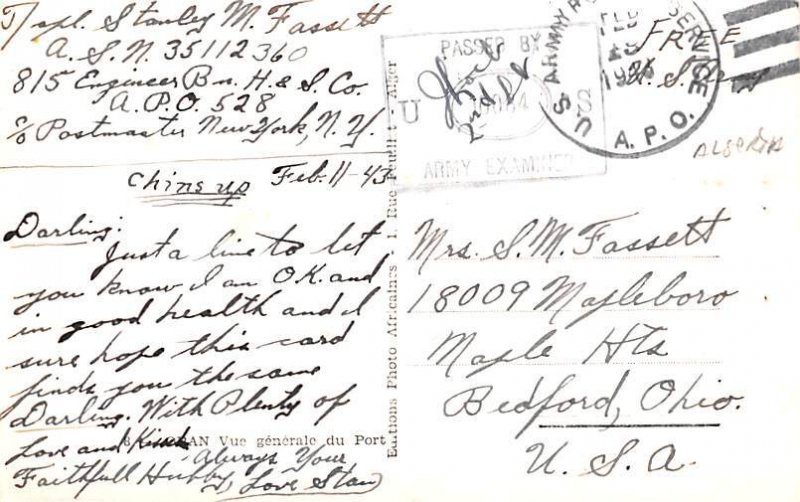 T/cpl. Stanley M. Fassett
A.S.N. 35112360
815 Engineer Bn. H. & S. Co.
A.P.O. 528
c/o Postmaster New York, N.Y.
Chins up
Feb. 11-43
Darling:
Just a line to let
you know I am O.K. and
in good health and I
sure hope this card
finds you the same
Darling. With Plenty of
Love and Kisses
Always Your
Faithfull Hubby, Love Stan
ORAN Vue générale du Port
Editions Photo Africaines - 1, Rue Feuillet - Alger
PASSED BY
U S
ARMY EXAMINER
U.S. ARMY POSTAL SERVICE
A.P.O.
FEB
FREE
U.S. Army
ALGERIA
Mrs. S. M. Fassett
18009 Mapleboro
Maple Hts
Bedford, Ohio.
U. S. A.